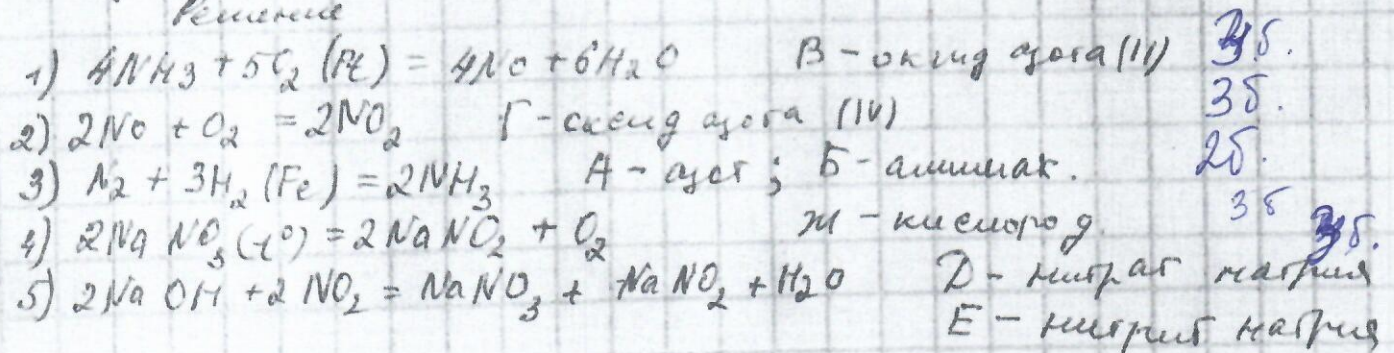 Решение
1) 4NH3 + 5O2 (Pt) = 4No + 6H2O В - оксид азота (II) 3б.
2) 2No + O2 = 2NO2 Г - оксид азота (IV) 3б.
3) N2 + 3H2 (Fe) = 2NH3 А - азот ; Б - аммиак. 2б.
4) 2NaNO3 (t°) = 2NaNO2 + O2 Ж - кислород. 3б 3б.
5) 2NaOH + 2NO2 = NaNO3 + NaNO2 + H2O Д - нитрат натрия
Е - нитрит натрия